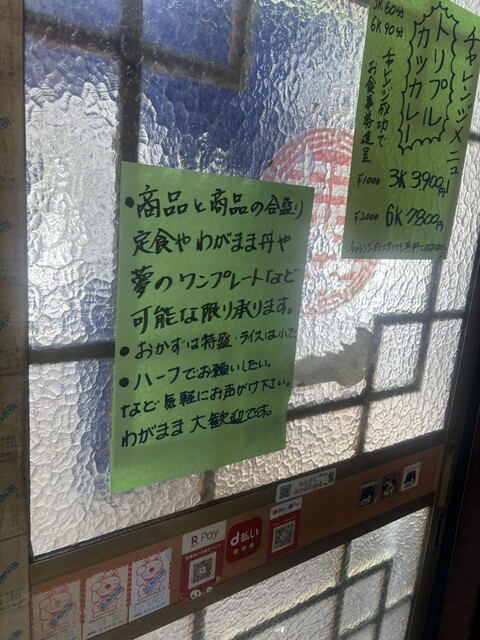 チャレンジメニュー
トリプル
カツカレー
3K 60分
6K 90分
チャレンジ成功で
お食事券進呈
¥1000 3K 3900円!
¥2000 6K 7800円
・商品と商品の合盛り
定食やわがまま丼や
夢のワンプレートなど
可能な限り承ります。
・おかずは特盛・ライスは小で。
・ハーフでお願いしたい。
など気軽にお声がけ下さい。
わがまま大歓迎です。
R Pay
d払い